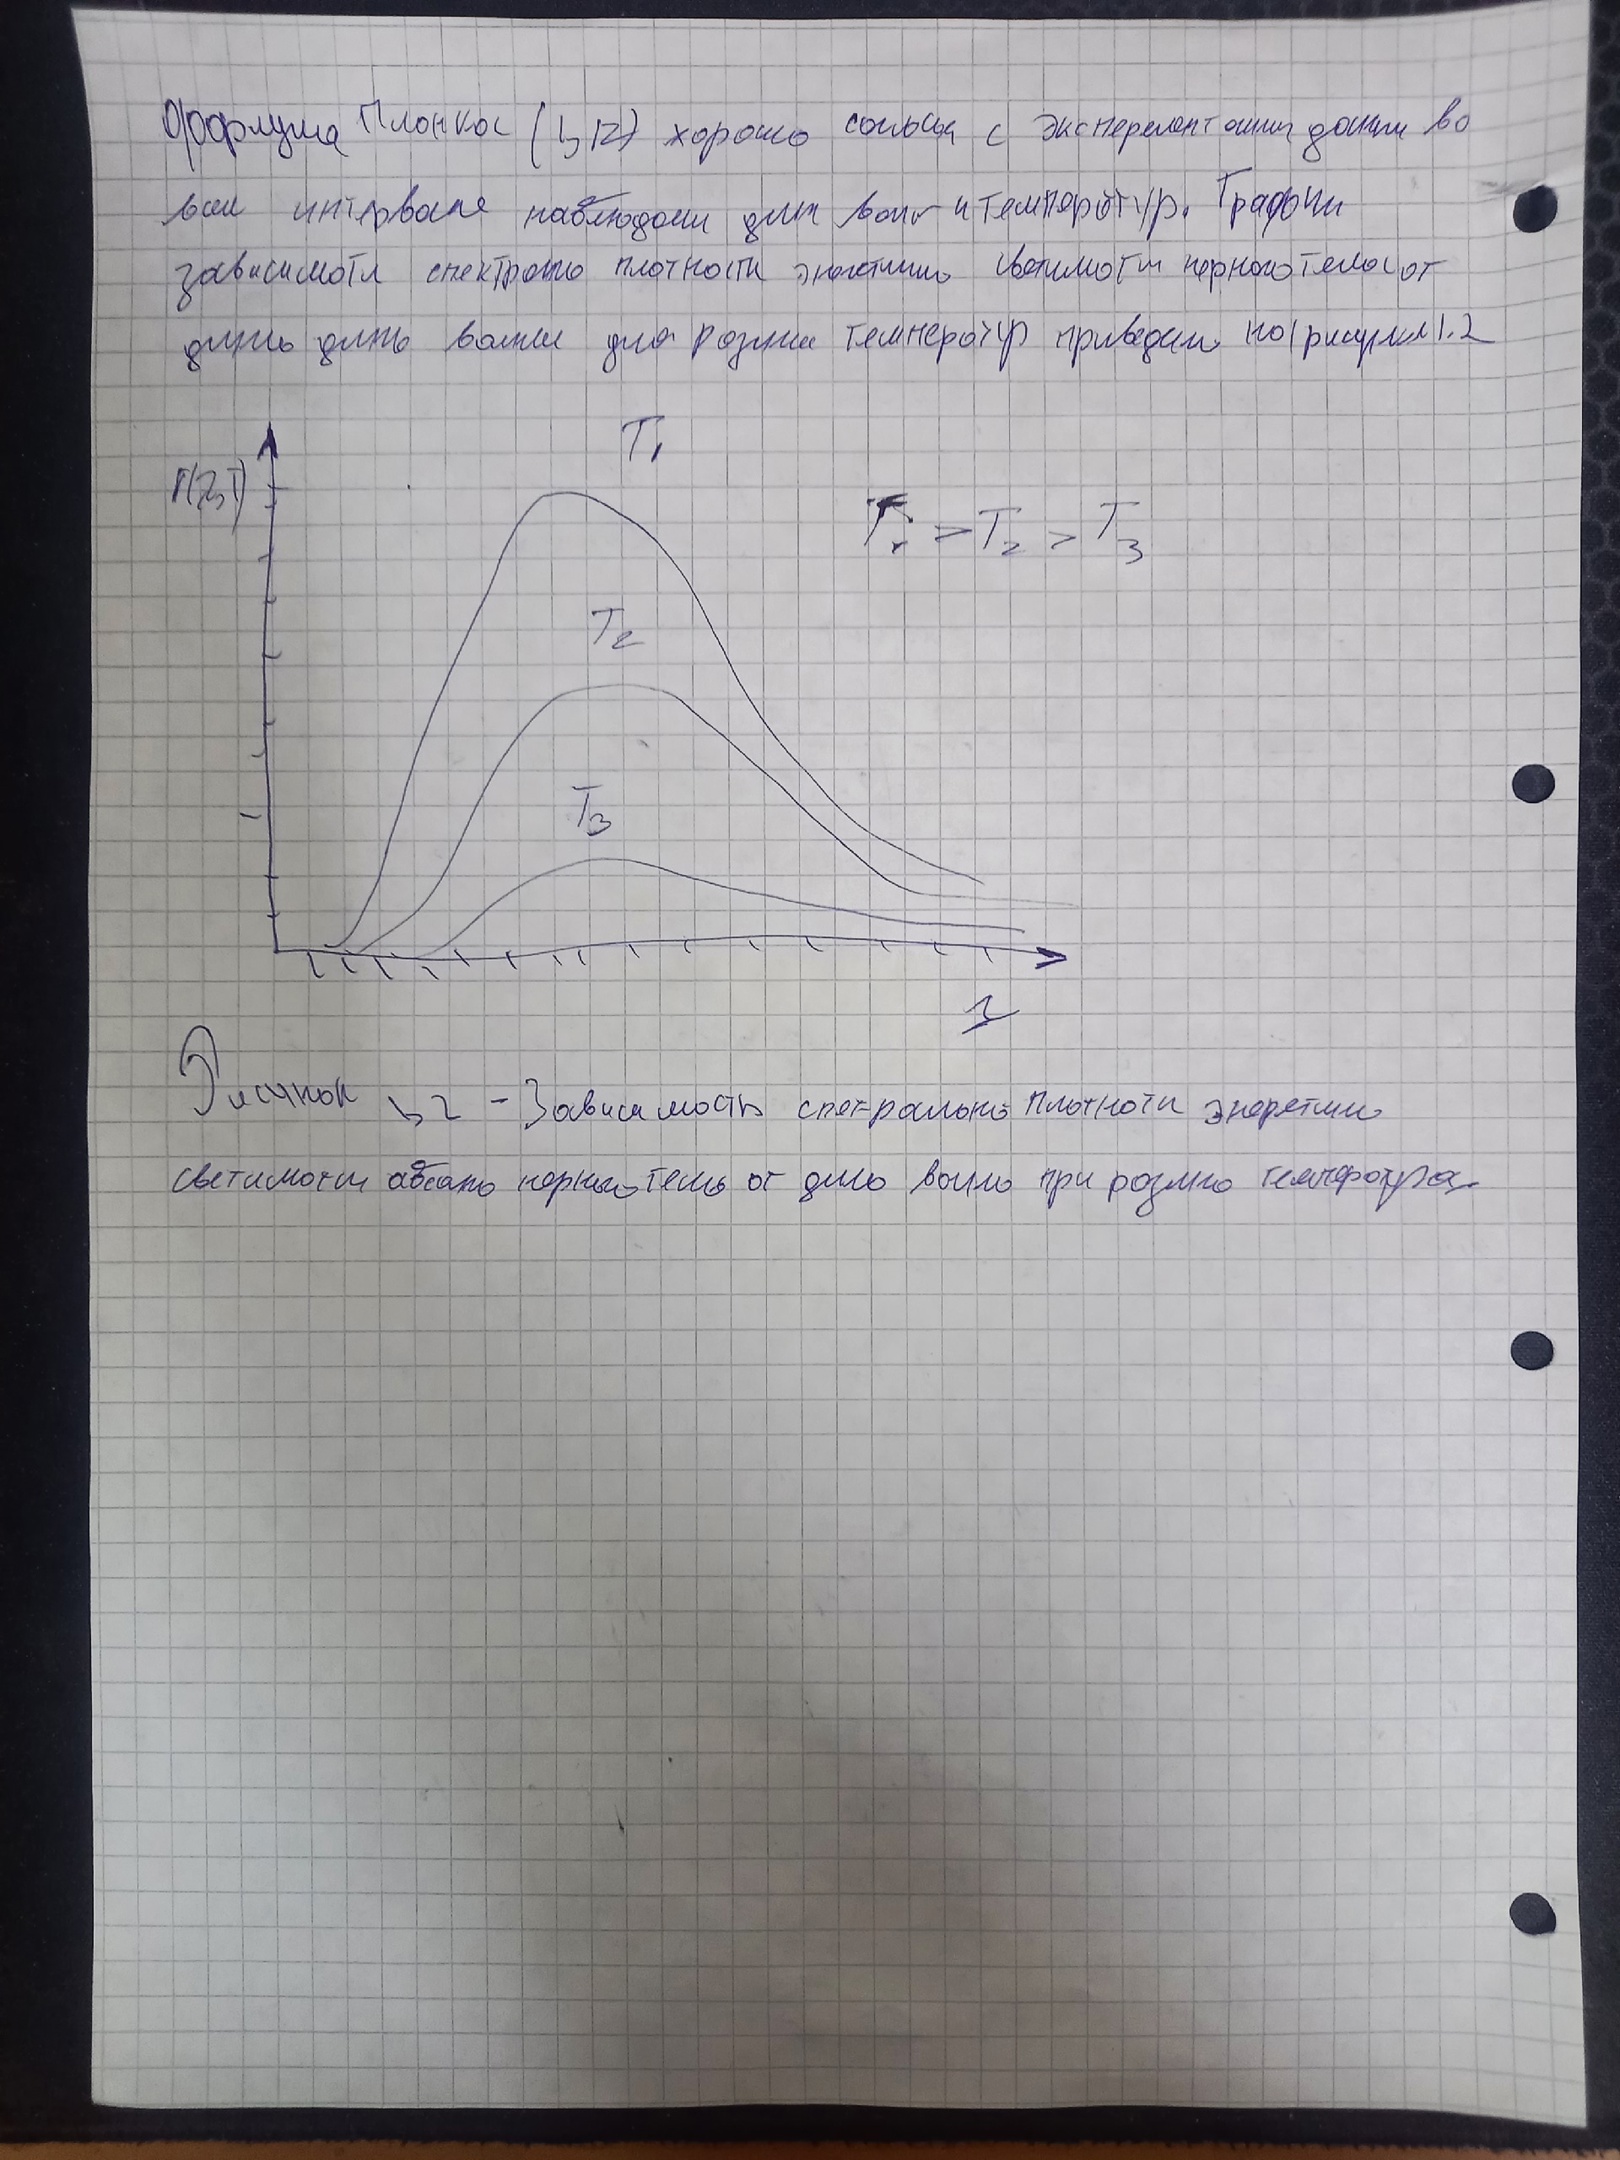 Формула Планка (1,12) хорошо согласуя с эксперементании даним во
всем интервале наблюдаем длин волн и температур. Графики
зависимоти спектрально плотности энегетично светимоти черного тела от
длинь длинь волни для розлии температур приведени на рисунке 1.2
T1
r(λ,T)
T1 > T2 > T3
T2
T3
λ
Рисунок 1,2 - Зависимость спектрально плотноти энергетично
светимоти абсолю черного тель от длино волно при розлично температура